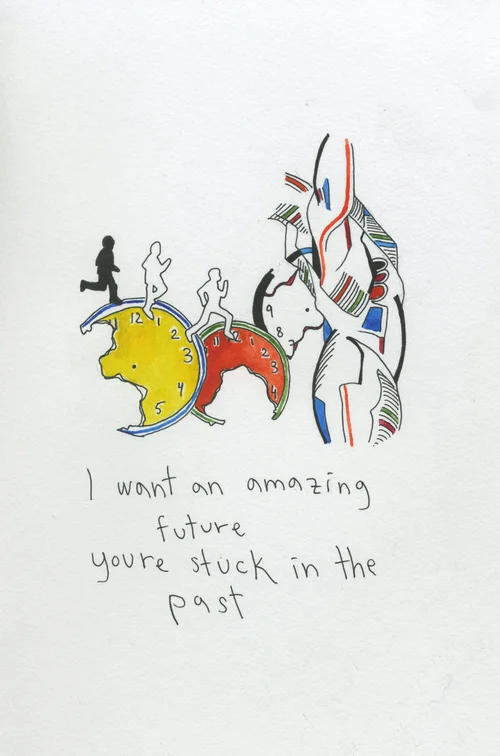 12 1 2 3 4 5
11 2 3 4
9 8
I want an amazing
future
youre stuck in the
past